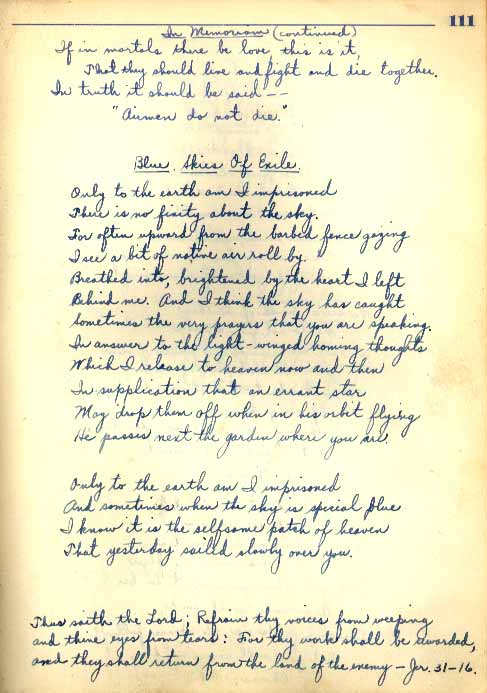 111
In Memoriam (continued)
If in mortals there be love, this is it,
That they should live and fight and die together.
In truth it should be said --
"Airmen do not die."
Blue Skies Of Exile.
Only to the earth am I imprisoned
There is no fixity about the sky.
For often upward from the barbed fence gazing
I see a bit of native air roll by.
Breathed into, brightened by the heart I left
Behind me. And I think the sky has caught
Sometimes the very prayers that you are speaking.
In answer to the light-winged homing thoughts
Which I release to heaven now and then
In supplication that an errant star
May drop them off when in his orbit flying
He passes next the garden where you are.
Only to the earth am I imprisoned
And sometimes when the sky is special blue
I know it is the selfsame patch of heaven
That yesterday sailed slowly over you.
Thus saith the Lord; Refrain thy voices from weeping
and thine eyes from tears: For thy work shall be awarded,
and they shall return from the land of the enemy - Jer. 31-16.